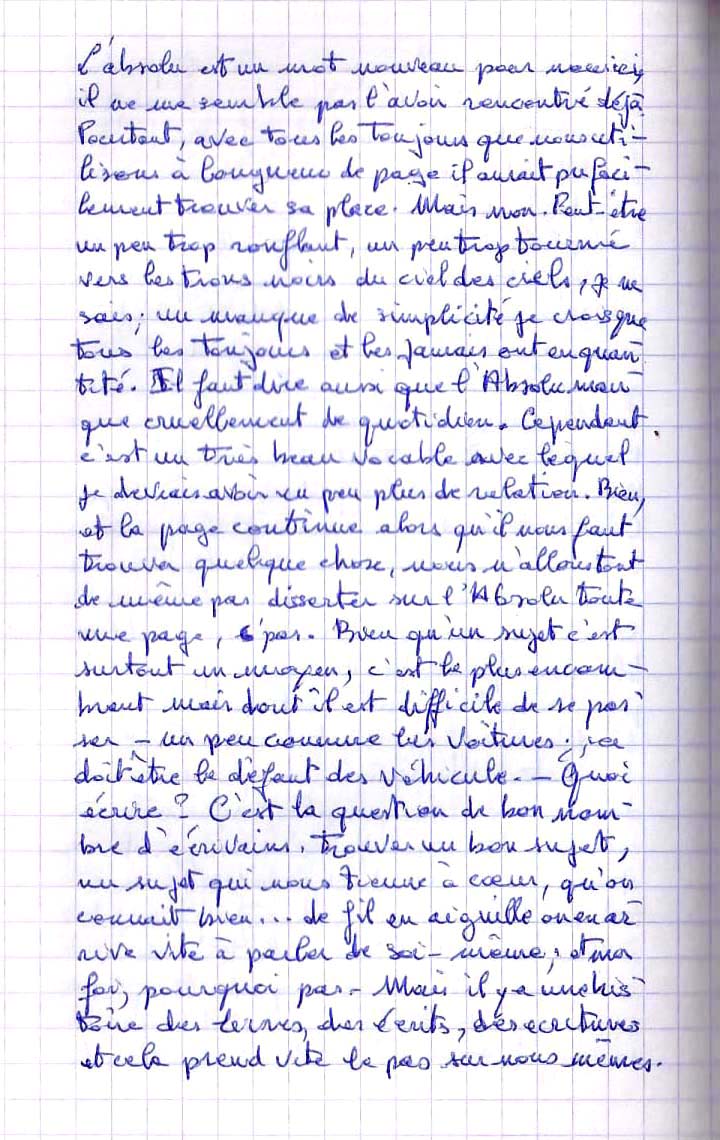 L'absolu est un mot nouveau pour nous ici,
il ne me semble pas l'avoir rencontré déjà
Pourtant, avec tous les toujours que nous uti-
lisons à longueur de page il aurait pu faci-
lement trouver sa place. Mais non. Peut-être
un peu trop ronflant, un peu trop tourné
vers les trous noirs du ciel des ciels, je ne
sais; un manque de simplicité je crois que
tous les toujours et les jamais ont en quan-
tité. Il faut dire aussi que l'Absolu man-
que cruellement de quotidien. Cependant
c'est un très beau vocable avec lequel
je devrais avoir un peu plus de relation. Bien,
et la page continue alors qu'il nous faut
trouver quelque chose, nous n'allons tout
de même pas disserter sur l'Absolu toute
une page, c'pas. Bien qu'un sujet c'est
surtout un moyen, c'est le plus encom-
brant mais dont il est difficile de se pas-
ser - un peu comme les voitures; ce
doit être le défaut des véhicule. - Quoi
écrire ? C'est la question de bon nom-
bre d'écrivains. Trouver un bon sujet,
un sujet qui nous tienne à cœur, qu'on
connait bien... de fil en aiguille on en ar-
rive vite à parler de soi-même, et ma
foi, pourquoi pas - Mais il y a une his-
toire des livres, des écrits, des ecritures
et cela prend vite le pas sur nous mêmes.